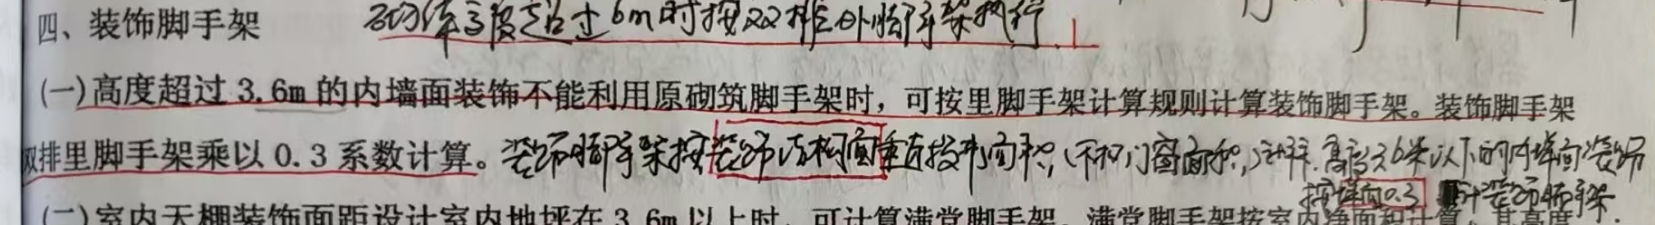 四、装饰脚手架 砌体高度超过6m时按双排外脚手架执行.
(一)高度超过 3.6m 的内墙面装饰不能利用原砌筑脚手架时，可按里脚手架计算规则计算装饰脚手架。装饰脚手架
双排里脚手架乘以 0.3 系数计算。装饰脚手架按装饰结构面垂直投影面积,(不扣门窗面积,)计算.高度3.6米以下的内墙面装饰
按墙面0.3 计装饰脚手架.
(二)室内天棚装饰面距设计室内地坪在 3.6m 以上时，可计算满堂脚手架。满堂脚手架按室内净面积计算，其高度